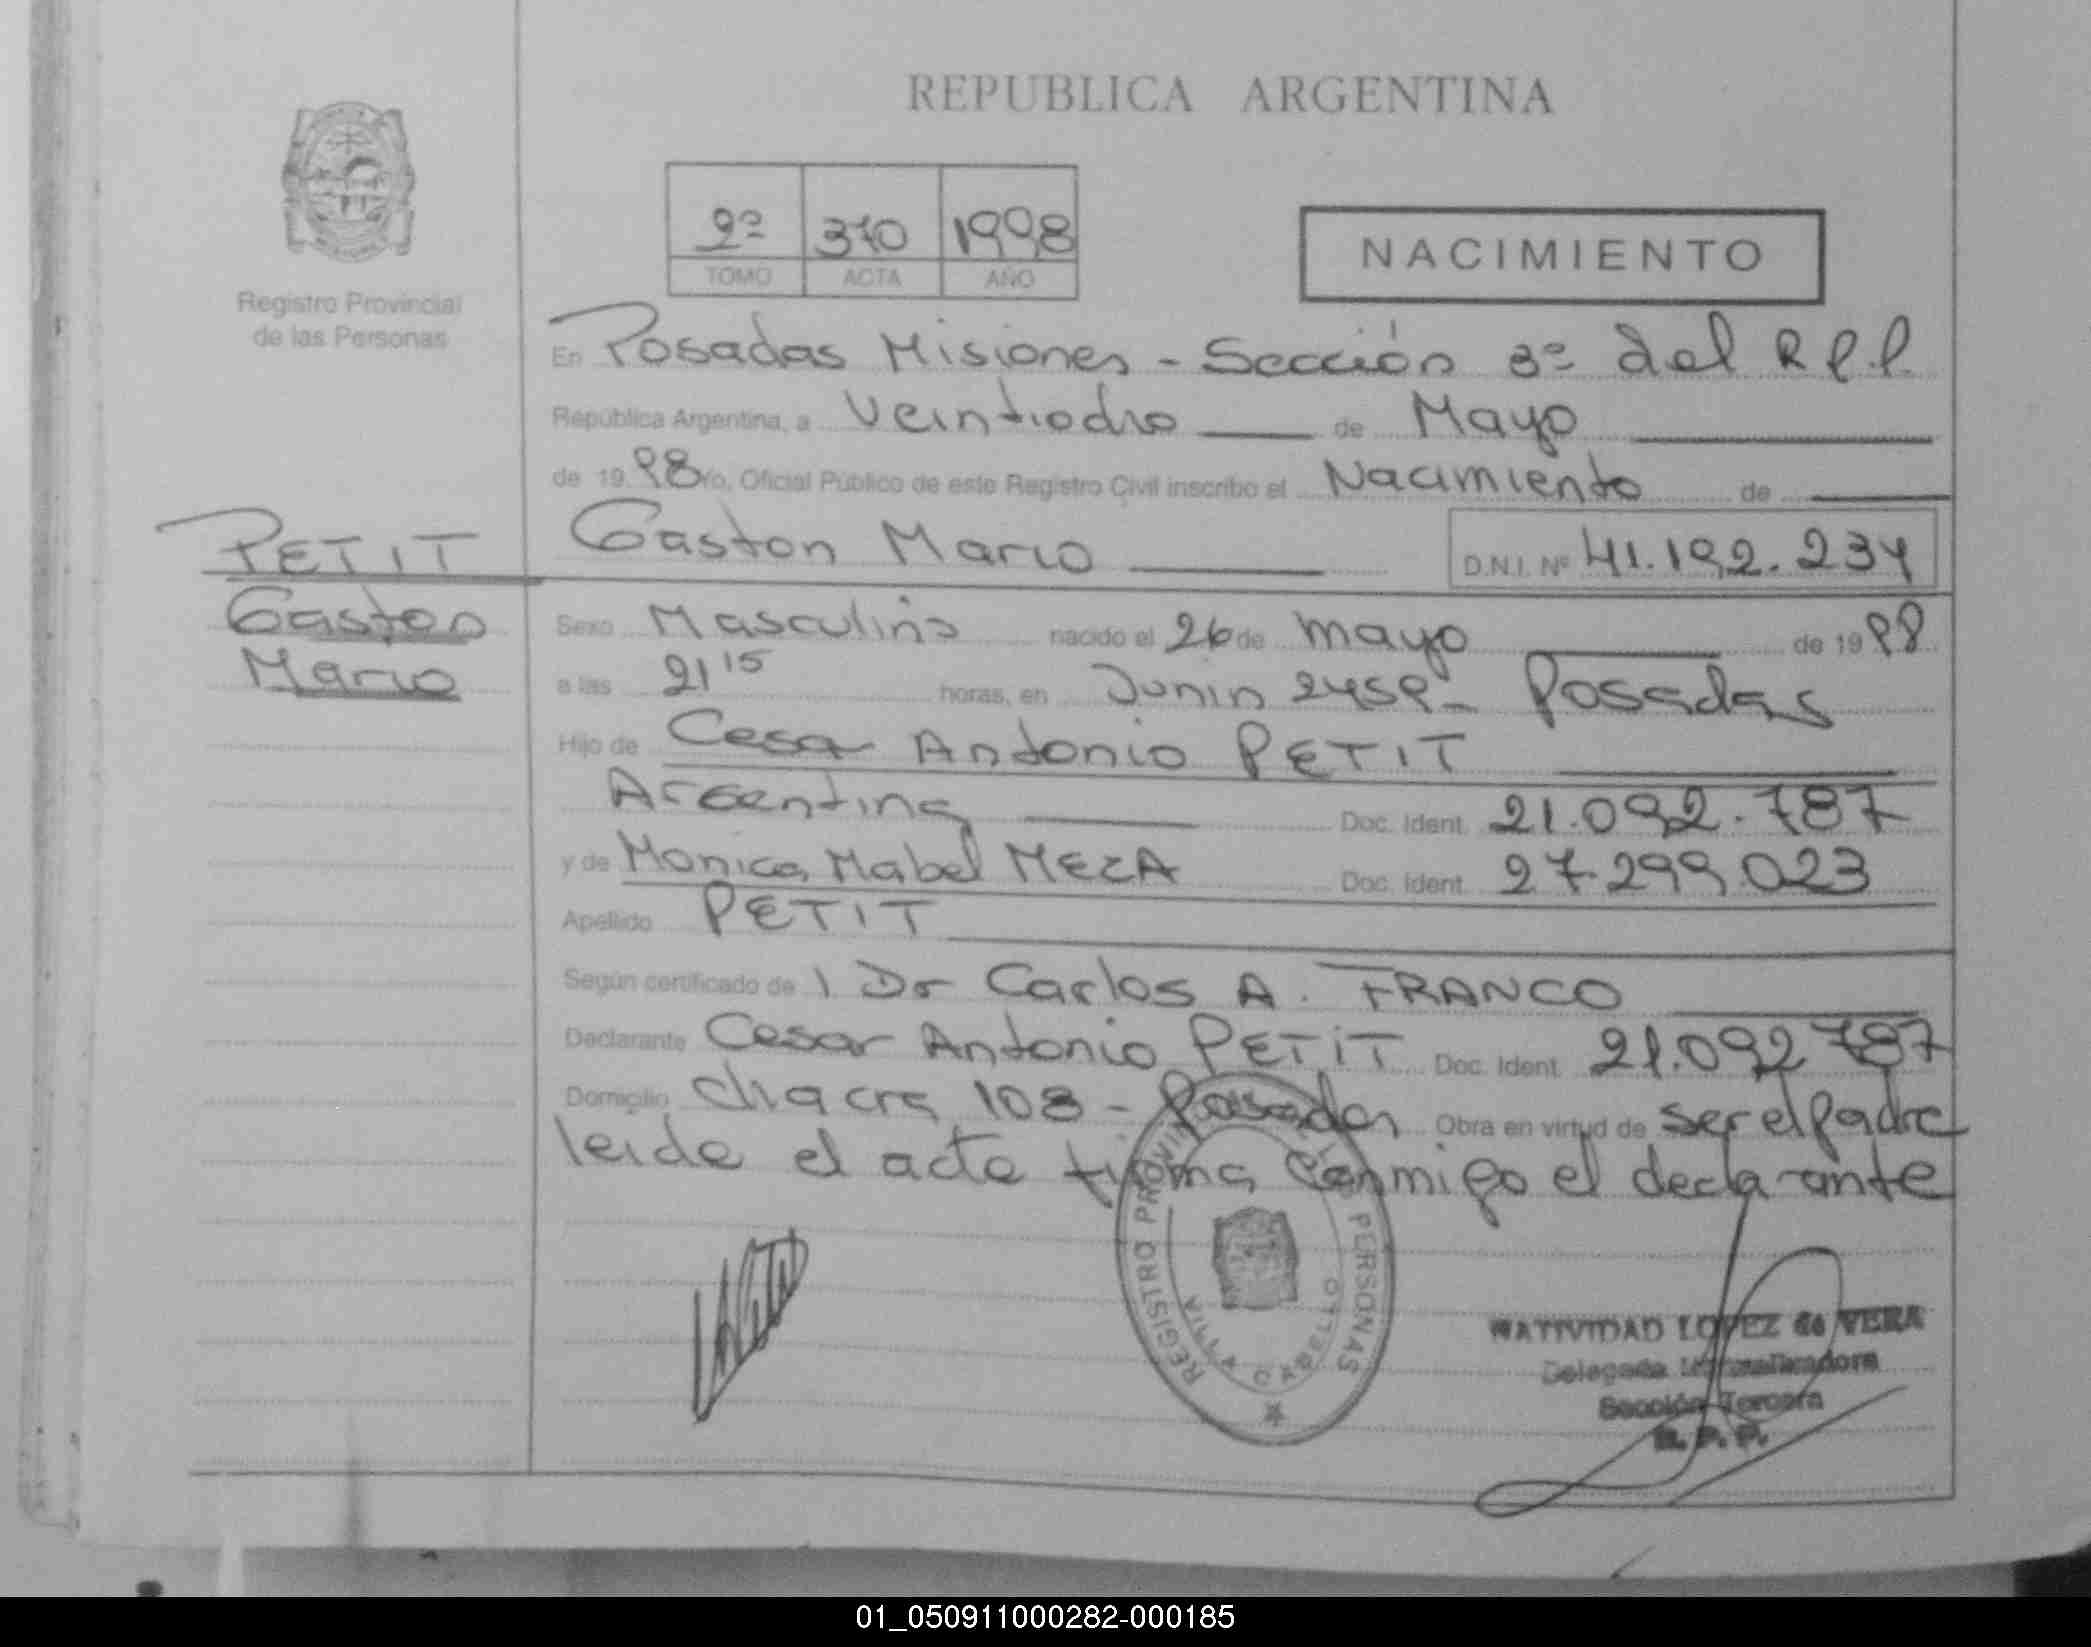 REPUBLICA ARGENTINA
2º 370 1998
TOMO ACTA AÑO
NACIMIENTO
Registro Provincial
de las Personas
En Posadas Misiones - Sección 3º del R.P.P.
República Argentina, a Veintiocho de Mayo
de 19 98 Yo, Oficial Público de este Registro Civil inscribo el Nacimiento de
Gaston Mario D.N.I. Nº 41.192.234
PETIT
Gaston
Mario
Sexo Masculino nacido el 26 de mayo de 19 98
a las 21 15 horas, en Junin Posadas
Hijo de Cesar Antonio PETIT
Argentina Doc. Ident. 21.092.787
y de Monica Mabel MEZA Doc. Ident. 27.299.023
Apellido PETIT
Según certificado de l Dr Carlos A. FRANCO
Declarante Cesar Antonio PETIT Doc. Ident. 21.092.787
Domicilio chacra 108 - Posadas Obra en virtud de ser el padre
leida el acta firma conmigo el declarante
REGISTRO PROVINCIAL DE LAS PERSONAS
VILLA CABELLO
NATIVIDAD LOPEZ de VERA
Delegada
Sección Tercera
R. P. P.
01_050911000282-000185